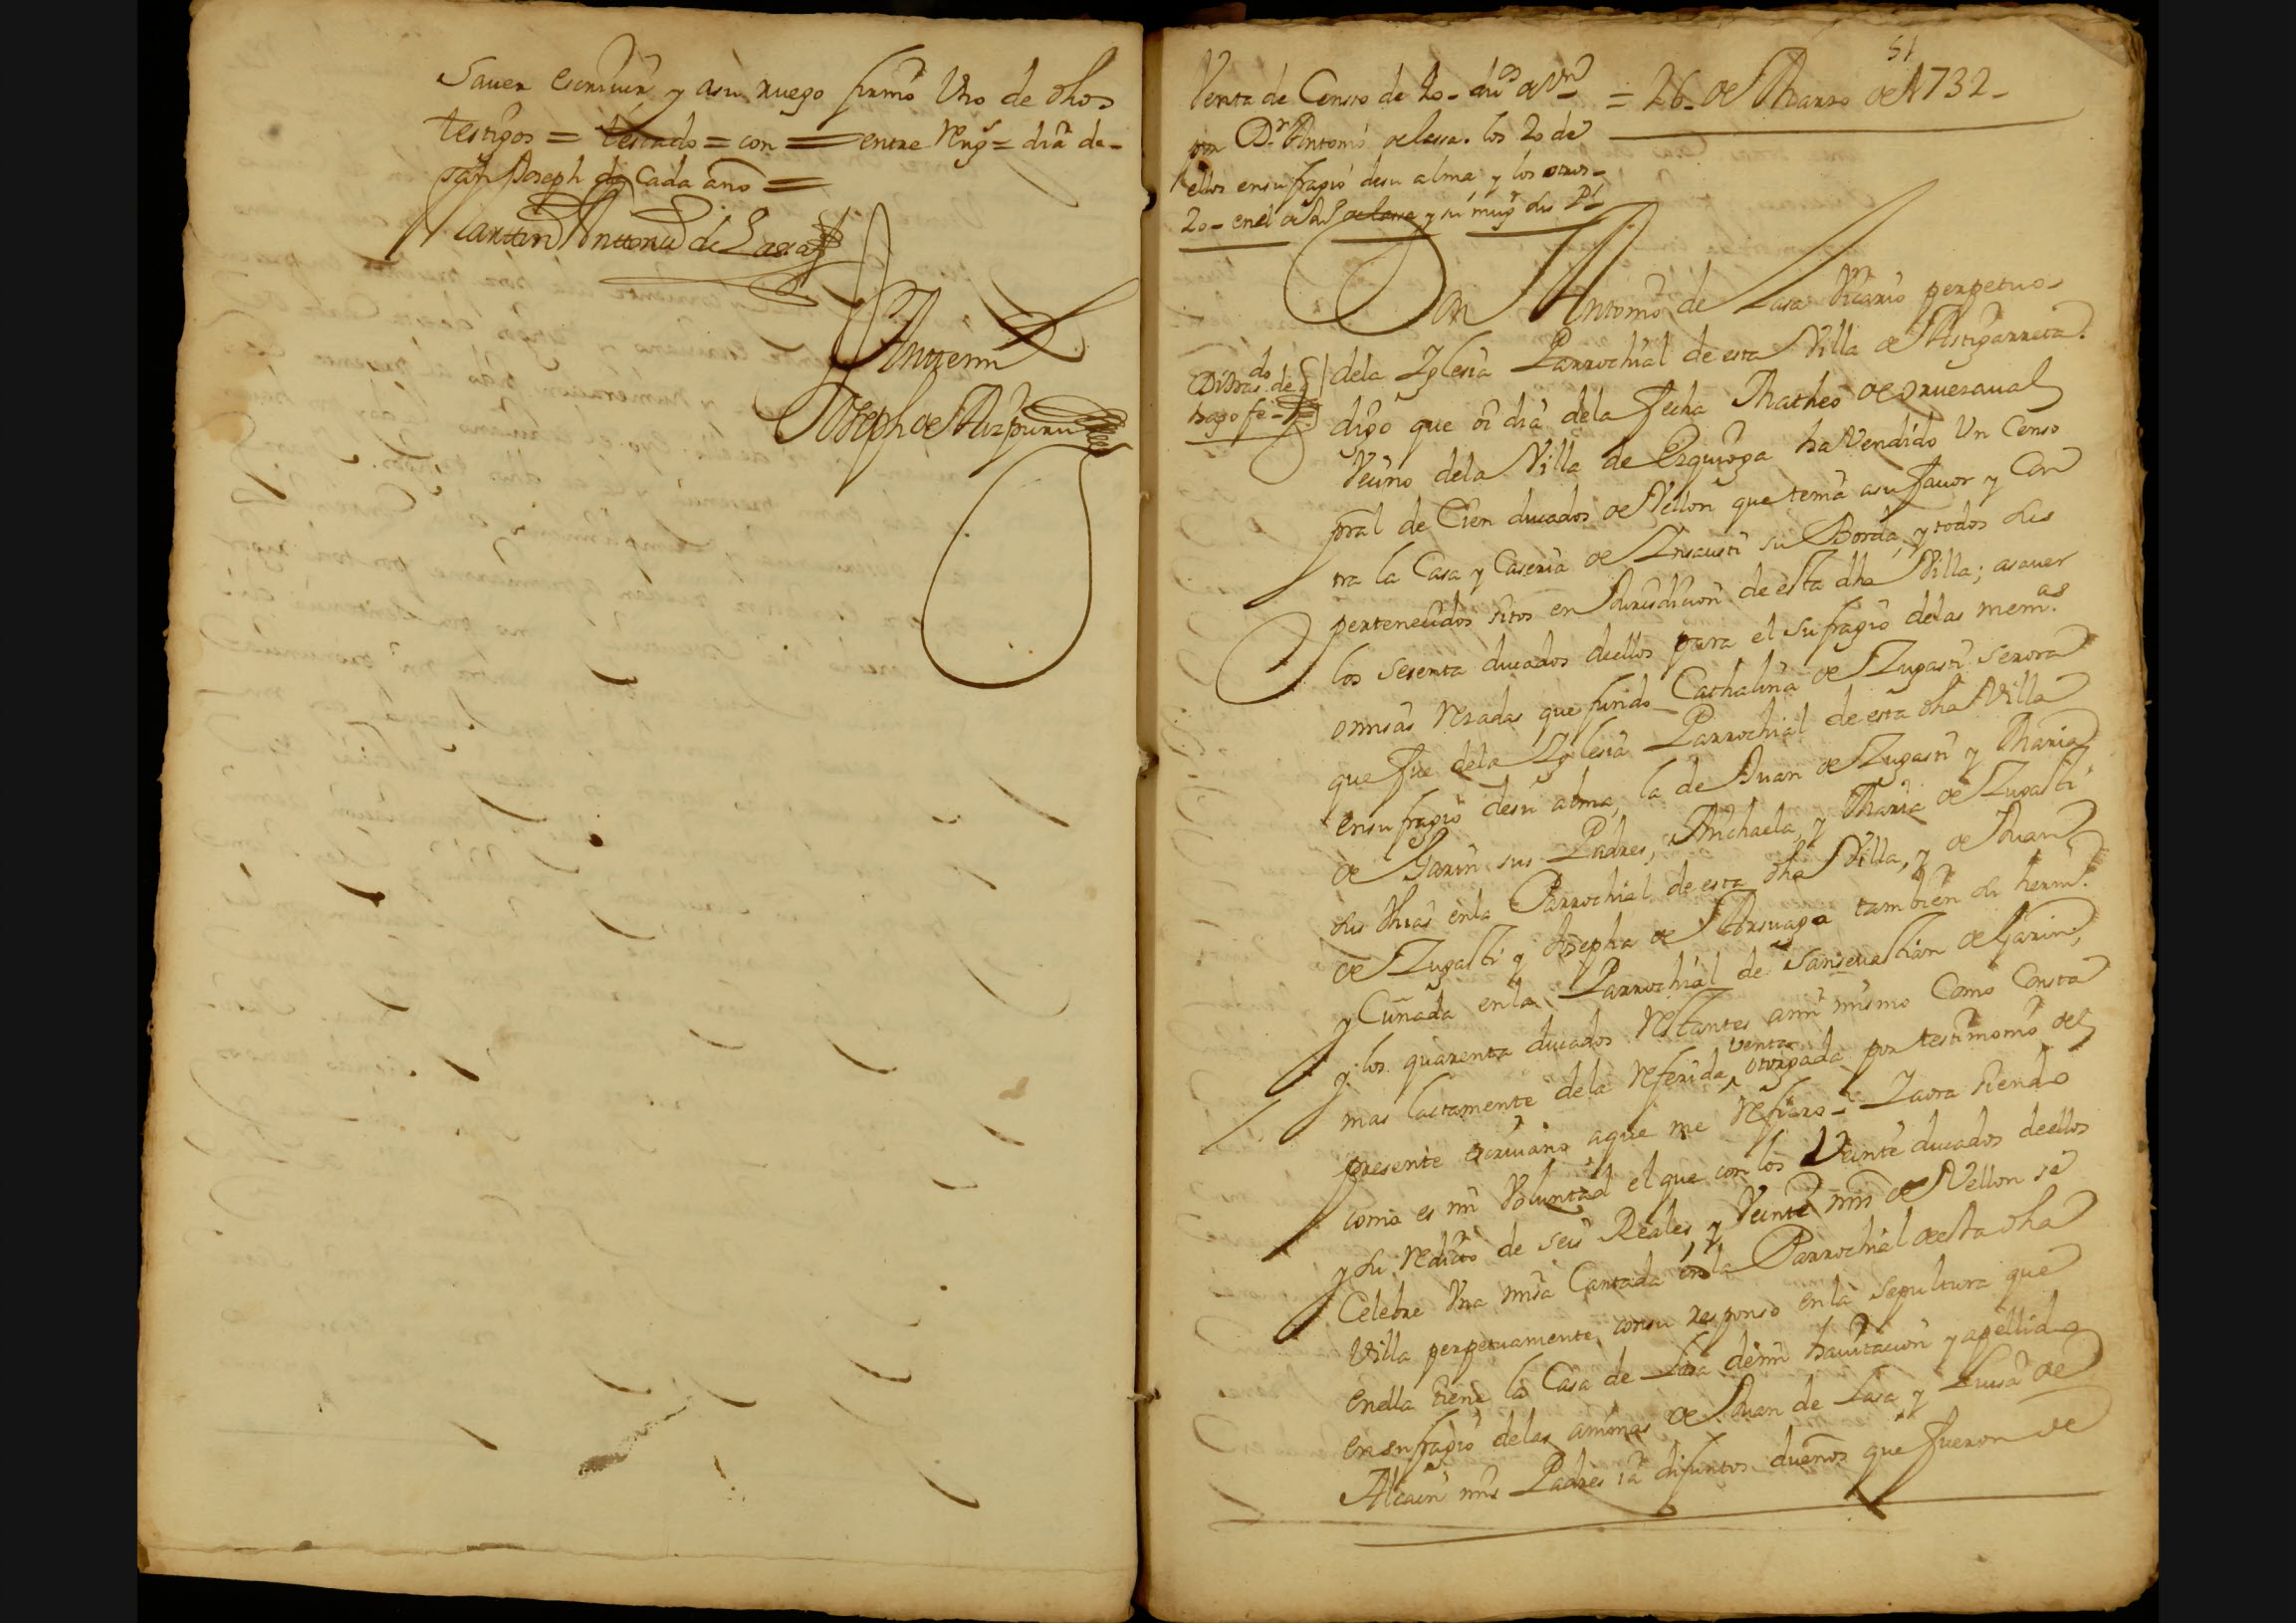 Sauer escriuir y asu ruego firmó Uno de dhos
testigos = testado = con = entre Reng.s = dia de-
san Joseph de Cada año =
Martin Antonio de Lasa
Antemi
Joseph de Aizpuru
51
Venta de Censo de 40- du.os de V.on = 26- de Marzo de 1732-
por D.n Antonio de lassa. los 20 de
ellos ensufragio desu alma y los otros-
20- en el de de lassa y su mug.r sus P.s
Don Antonio de Lasa Vicario perpetuo-
dela Iglesia Parrochial de esta Villa de Astigarreta.
do
de
hago fe-
digo que oi dia dela fecha Matheo de oruesaual
Vecino dela Villa de Ezquioga ha Vendido Un Censo
pral de Cien ducados de Vellon que tenia asu fauor y Con
tra la Casa y Caseria de Insausti su Borda, y todos sus
pertenecidos sitos en Jurisdicion de esta dha Villa; asauer
los sesenta ducados deellos para el sufragio delas mem.as
omisas Rezadas que fundo Cathalina de Zugasti serora
que fue dela Iglesia Parrochial de esta dha Villa
ensufragio desu alma, la de Juan de Zugasti y Maria
de Garin sus Padres, Michaela, y Maria de Zugasti
sus Thias enla Parrochial de esta dha Villa, y de Juan
de Zugasti y Josepha de Arsuaga tambien su herm.o
y Cuñada enla Parrochial de Sanseuastian de Garin,
y los quarenta ducados Restantes ami mismo Como Consta
mas lactamente dela Referida venta otorgada por testimonio del
presente escriuano, aque me Refiero-; I aora siendo
como es mi Voluntad el que con los Veinte ducados deellos
y su Redicto de seis Reales, y Veinte mrs de Vellon se
Celebre Una misa Cantada enla Parrochial deesta dha
Villa perpetuamente, consu responso enla sepultura que
enella tiene la Casa de Lasa demi hauitacion y apellido
ensufragio delas animas de Juan de Lasa y Luisa de
Alcain mis Padres ia difuntos dueños que fueron de